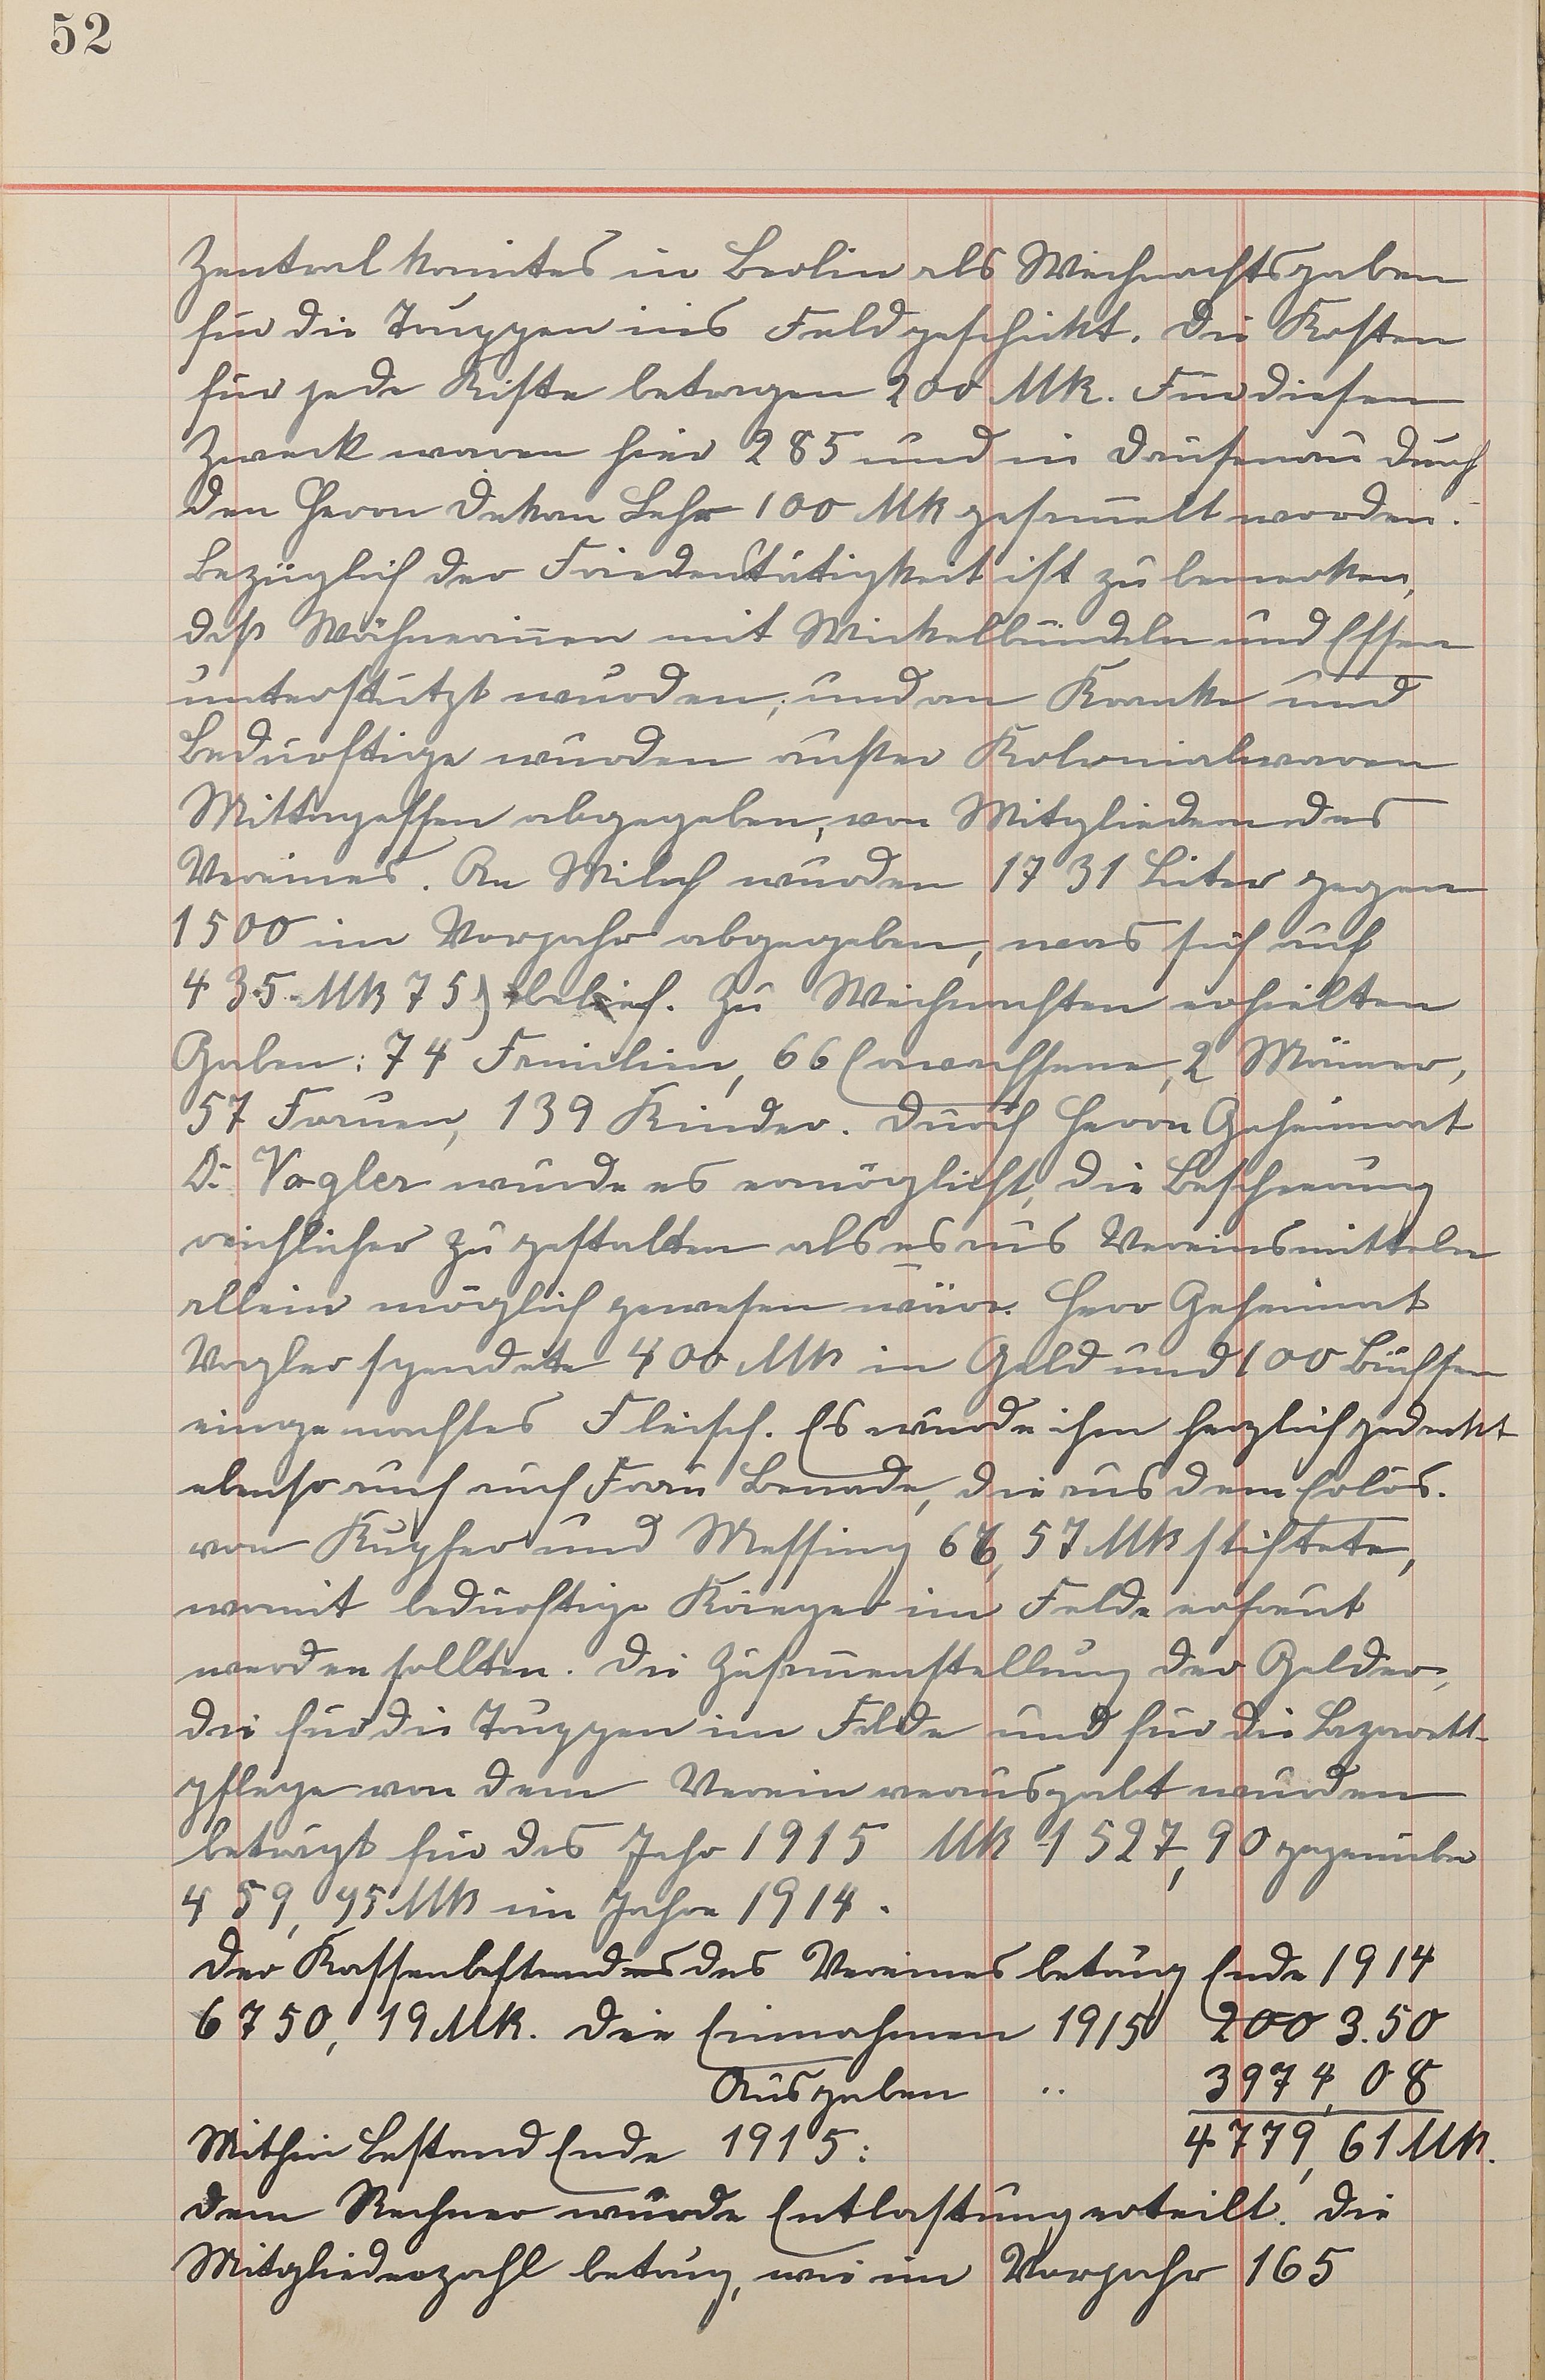 52
Zentralkomites in Berlin als Weihnachtsgaben
für die Truppen ins Feld geschickt. Die Kosten
für jede Kiste betragen 200 Mk. Für diesen
Zweck waren hier 285 und in Dausenau durch
den Herrn Dekan Lehr 100 Mk gesam̅elt worden.
Bezüglich der Friedenstätigkeit ist zu bemerken,
daß Wöchnerin̅en mit Wickelbündeln und Essen
unterstützt wurden; und an Kranke und
Bedürftige wurden außer Kolonialwaren
Mittagessen abgegeben, von Mitgliedern des
Vereines. An Milch wurden 1731 Liter gegen
1500 im Vorjahr abgegeben, was sich auf
435 Mk 75 belief. Zu Weihnachten erhielten
Gaben: 74 Familien, 66 Erwachsene, 2 Män̅er,
57 Frauen, 139 Kinder. Durch Herrn Geheimrat
Dr. Vogler wurde es ermöglicht, die Bescherung
reichlicher zu gestalten als es aus Vereinsmitteln
allein möglich gewesen wäre. Herr Geheimrat
Vogler spendete 400 Mk in Geld und 100 Büchsen
eingemachtes Fleisch. Es wurde ihm herzlich gedankt
ebenso auch auch Frau Benade, die aus dem Erlös
von Kupfer und Messing 66,57 Mk stiftete,
womit bedürftige Krieger im Felde erfreut
werden sollten. Die Zusam̅enstellung der Gelder,
die für die Truppen im Felde und für die Lazarett-
pflege von dem Verein verausgabt wurden
beträgt für das Jahr 1915 Mk 1527,90 gegenüber
459,95 Mk im Jahre 1914.
Der Kassenbestand des Vereines betrug Ende 1914
6750,19 Mk. Die Einnahmen 1915 2003.50
Ausgaben " 3974,08
Mithin Bestand Ende 1915: 4779,61 Mk.
Dem Rechner wurde Entlastung erteilt. Die
Mitgliederzahl betrug, wie im Vorjahr 165